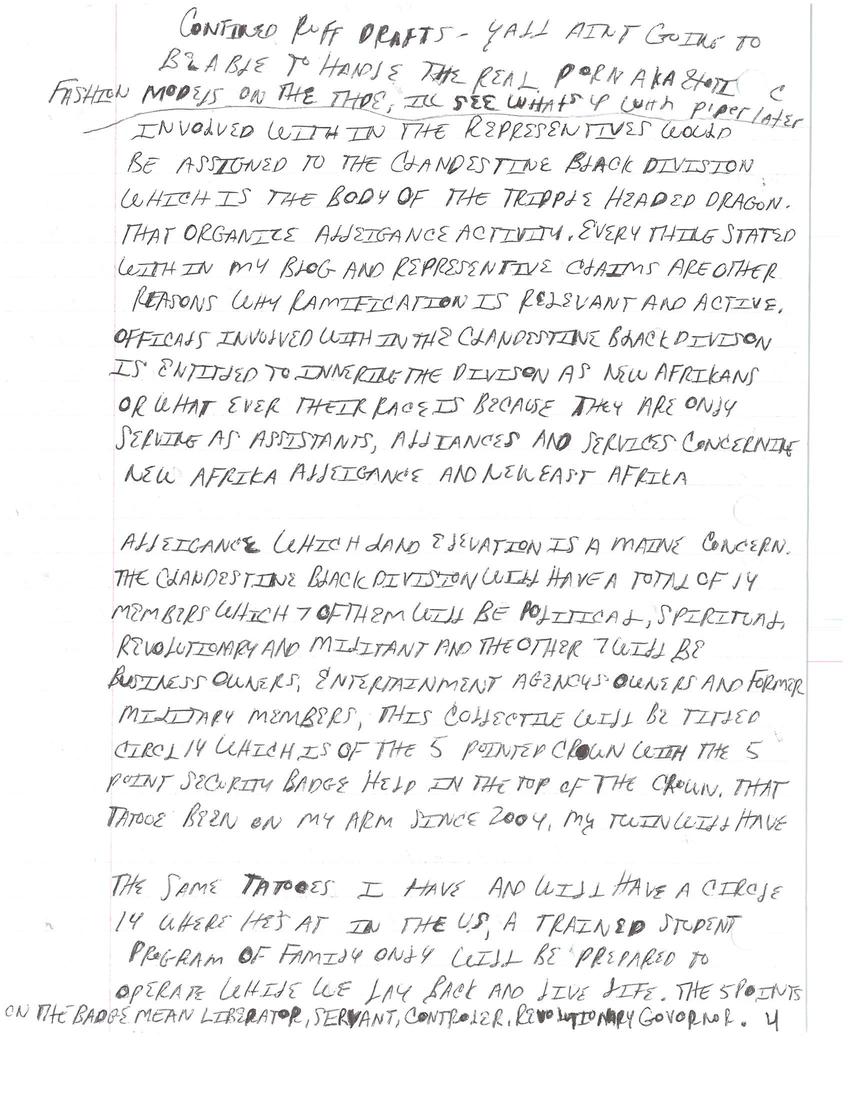 CONTINED RUFF DRAFTS - YALL AINT GOING TO
BE ABLE TO HANDLE THE REAL PORN AKA
FASHION MODELS ON THE TIDE, ILL SEE WHATS UP WITH piper later
INVOLVED WITH IN THE REPRESENTIVES WOULD
BE ASSIGNED TO THE CLANDESTINE BLACK DIVISION
WHICH IS THE BODY OF THE TRIPPLE HEADED DRAGON.
THAT ORGANIZE ALLEIGANCE ACTIVITY. EVERY THING STATED
WITH IN MY BLOG AND REPRESENTIVE CLAIMS ARE OTHER
REASONS WHY RAMIFICATION IS RELEVANT AND ACTIVE.
OFFICALS INVOLVED WITH IN THE CLANDESTINE BLACK DIVISON
IS ENTITLED TO INNERING THE DIVISON AS NEW AFRIKANS
OR WHAT EVER THEIR RACE IS BECAUSE THEY ARE ONLY
SERVING AS ASSISTANTS, ALLIANCES AND SERVICES CONCERNING
NEW AFRIKA ALLEIGANCE AND NEW EAST AFRIKA
ALLEIGANCE WHICH LAND ELEVATION IS A MAINE CONCERN.
THE CLANDESTINE BLACK DIVISION WILL HAVE A TOTAL OF 14
MEMBERS WHICH 7 OF THEM WILL BE POLITICAL, SPIRITUAL,
REVOLUTIONARY AND MILITANT AND THE OTHER 7 WILL BE
BUSINESS OWNERS, ENTERTAINMENT AGENCYS OWNERS AND FORMER
MILITARY MEMBERS, THIS COLLECTIVE WILL BE TITLED
CIRCL 14 WHICH IS OF THE 5 POINTED CROWN WITH THE 5
POINT SECURITY BADGE HELD IN THE TOP OF THE CROWN. THAT
TATOOE BEEN ON MY ARM SINCE 2004, MY TWIN WILL HAVE
THE SAME TATOOES I HAVE AND WILL HAVE A CIRCLE
14 WHERE HE'S AT IN THE U.S, A TRAINED STUDENT
PROGRAM OF FAMILY ONLY WILL BE PREPARED TO
OPERATE WHILE WE LAY BACK AND LIVE LIFE. THE 5 POINTS
ON THE BADGE MEAN LIBERATOR, SERVANT, CONTROLER, REVOLUTIONARY GOVORNOR. 4